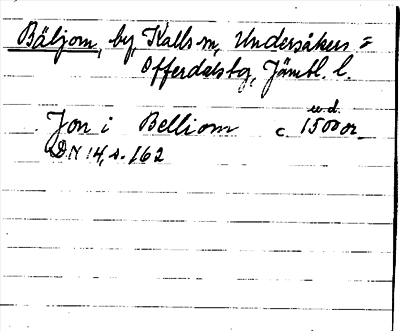 Bäljom, by, Kalls sn, Undersåkers =
Offerdals tg, Jämtl. l.
u.d.
Jon i Belliom c. 1500
DN 14, s. 162